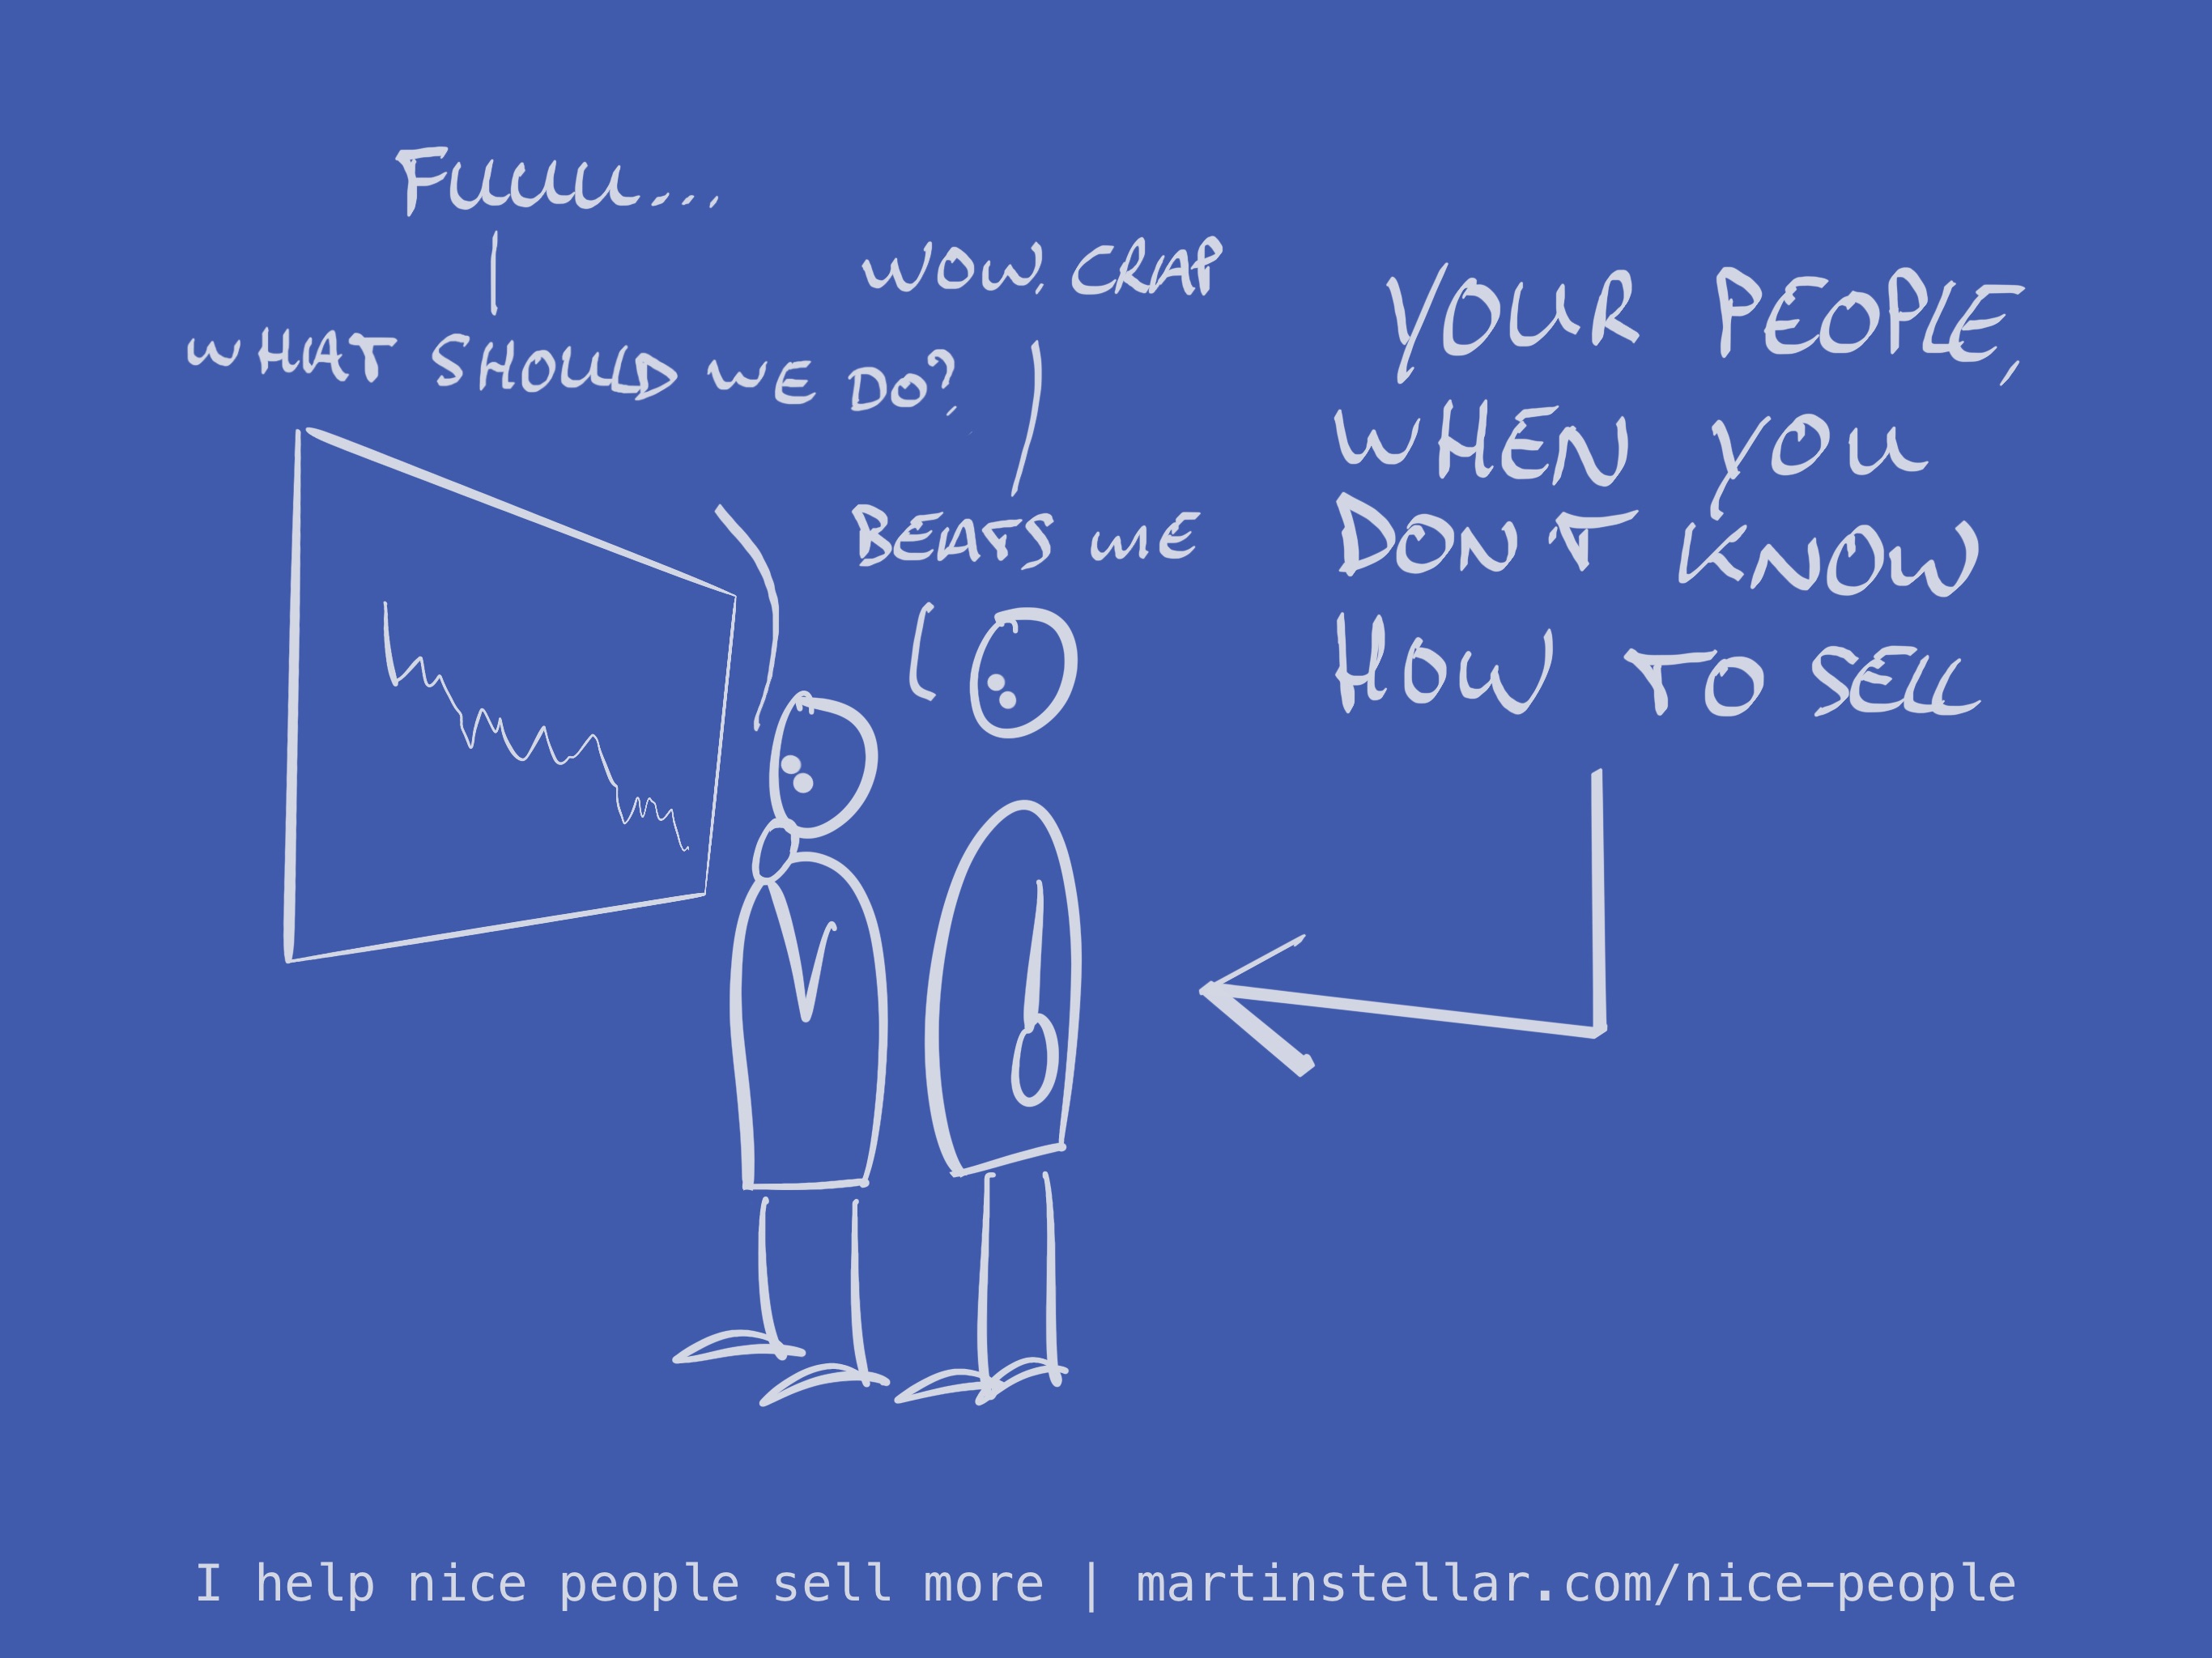 Fuuuu....
WHAT SHOULD WE DO?
WOW, CRAP
BEATS ME
YOUR PEOPLE,
WHEN YOU
DON'T KNOW
HOW TO SELL
I help nice people sell more | martinstellar.com/nice-people